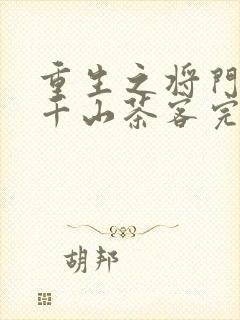 重生之将門
千山茶客完
胡邦